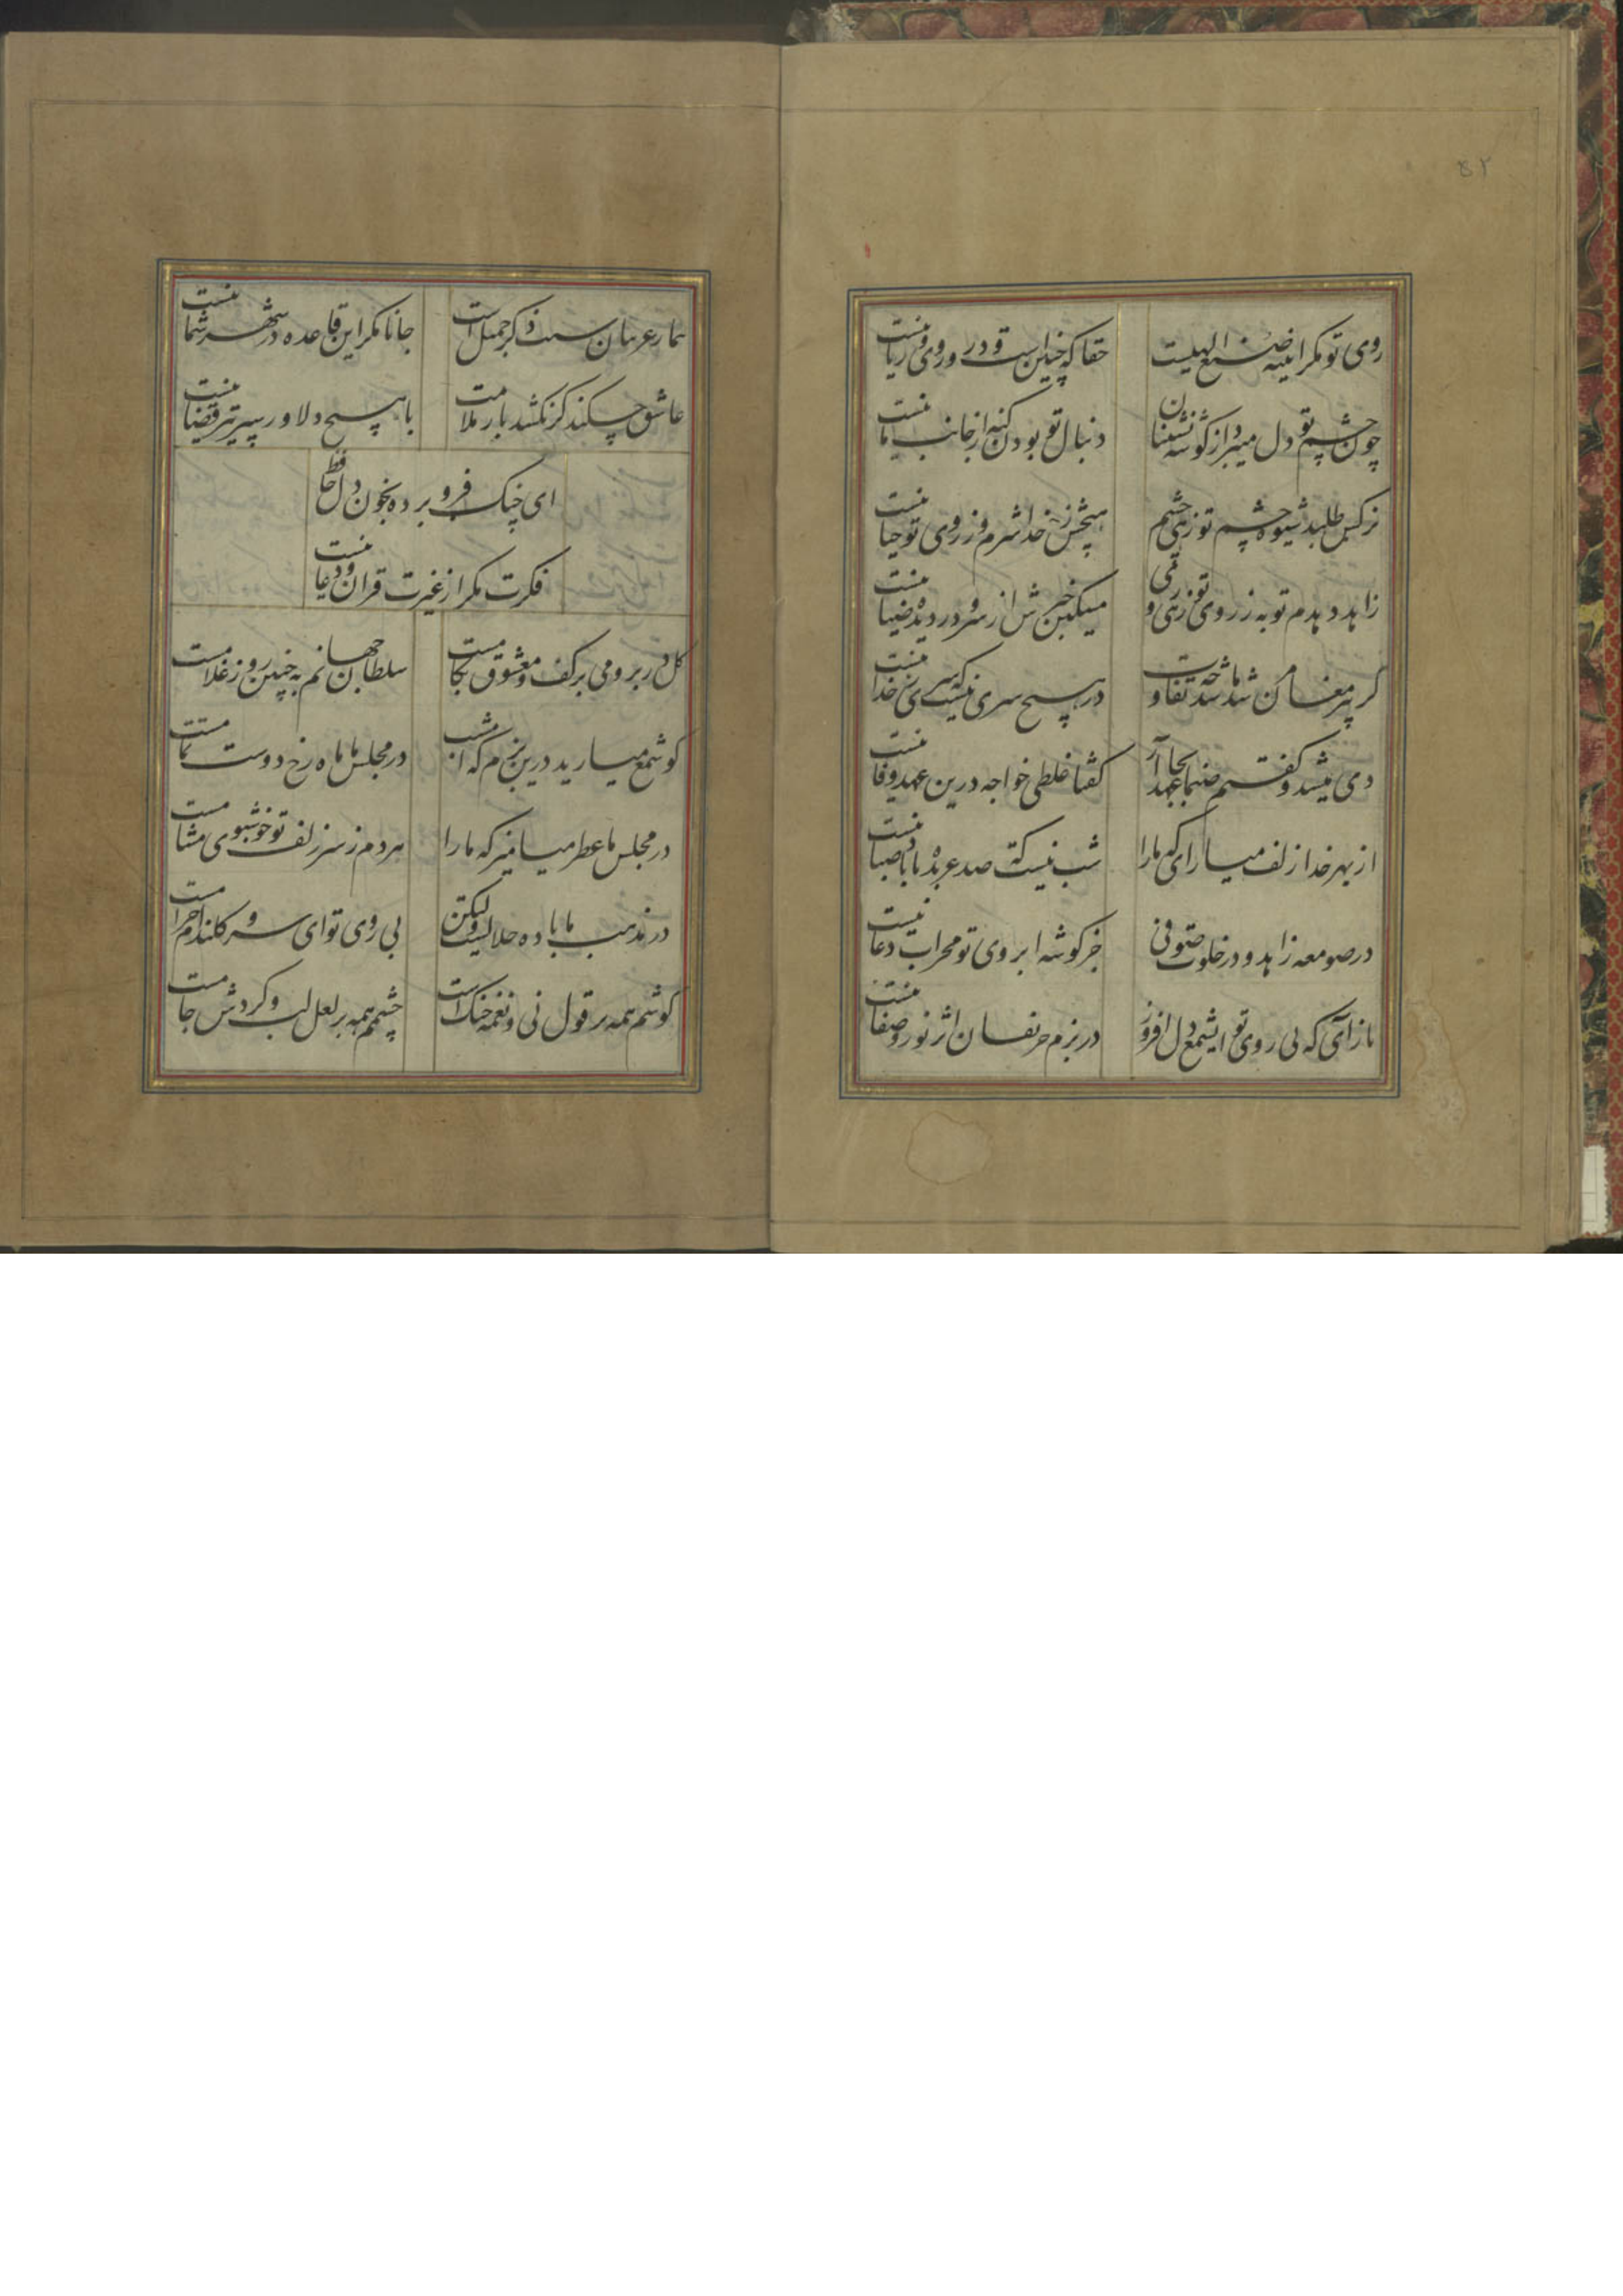 ۵۲
روی تو مکر آینه صنع الهیست
حقا که چنین است و درو روی و ریا نیست
چون چشم تو دل میبرد از گوشه نشینان
دنبال تو بودن گنه از جانب ما نیست
نرکس طلبد شیوه چشم تو زهی چشم
زخدا شرم و ز روی تو حیا نیست
زاهد دهدم توبه ز روی تو زهی روی
در دیده ضیا نیست
کر پیر مغان شد چه تفاوت
در هیچ سری نیست که سری ز خدا نیست
دی میشد و کفتم صنما عهد بجا آر
کفتا غلطی خواجه درین عهد وفا نیست
از بهر خدا زلف میارای که ما را
شب نیست که صد عربده با باد صبا نیست
در صومعه زاهد و در خلوت صوفی
جز کوشه ابروی تو محراب دعا نیست
بازآی که بی روی تو ای شمع دل افروز
در بزم حریفان اثر نور و صفا نیست
تیمار غریبان سبب ذکر جمیل است
جانا مکر این قاعده در شهر شما نیست
عاشق چکند کر نکشد بار ملامت
با هیچ دلاور سپر تیر قضا نیست
ای چنک فرو برده بخون دل حافظ
فکرت مکر از غیرت قران و دعا نیست
کل در بر و می بر کف و معشوق بکامست
سلطان جهانم به چنین روز غلامست
کو شمع میارید درین بزم که امشب
در مجلس ما ماه رخ دوست تمامست
در مجلس ما عطر میامیز که ما را
هر دم ز سر زلف تو خوشبوی مشامست
در مذهب ما باده حلالست ولیکن
بی روی تو ای سرو کلندام حرامست
کوشم همه بر قول نی و نغمه چنک است
چشمم همه بر لعل لب و کردش جامست